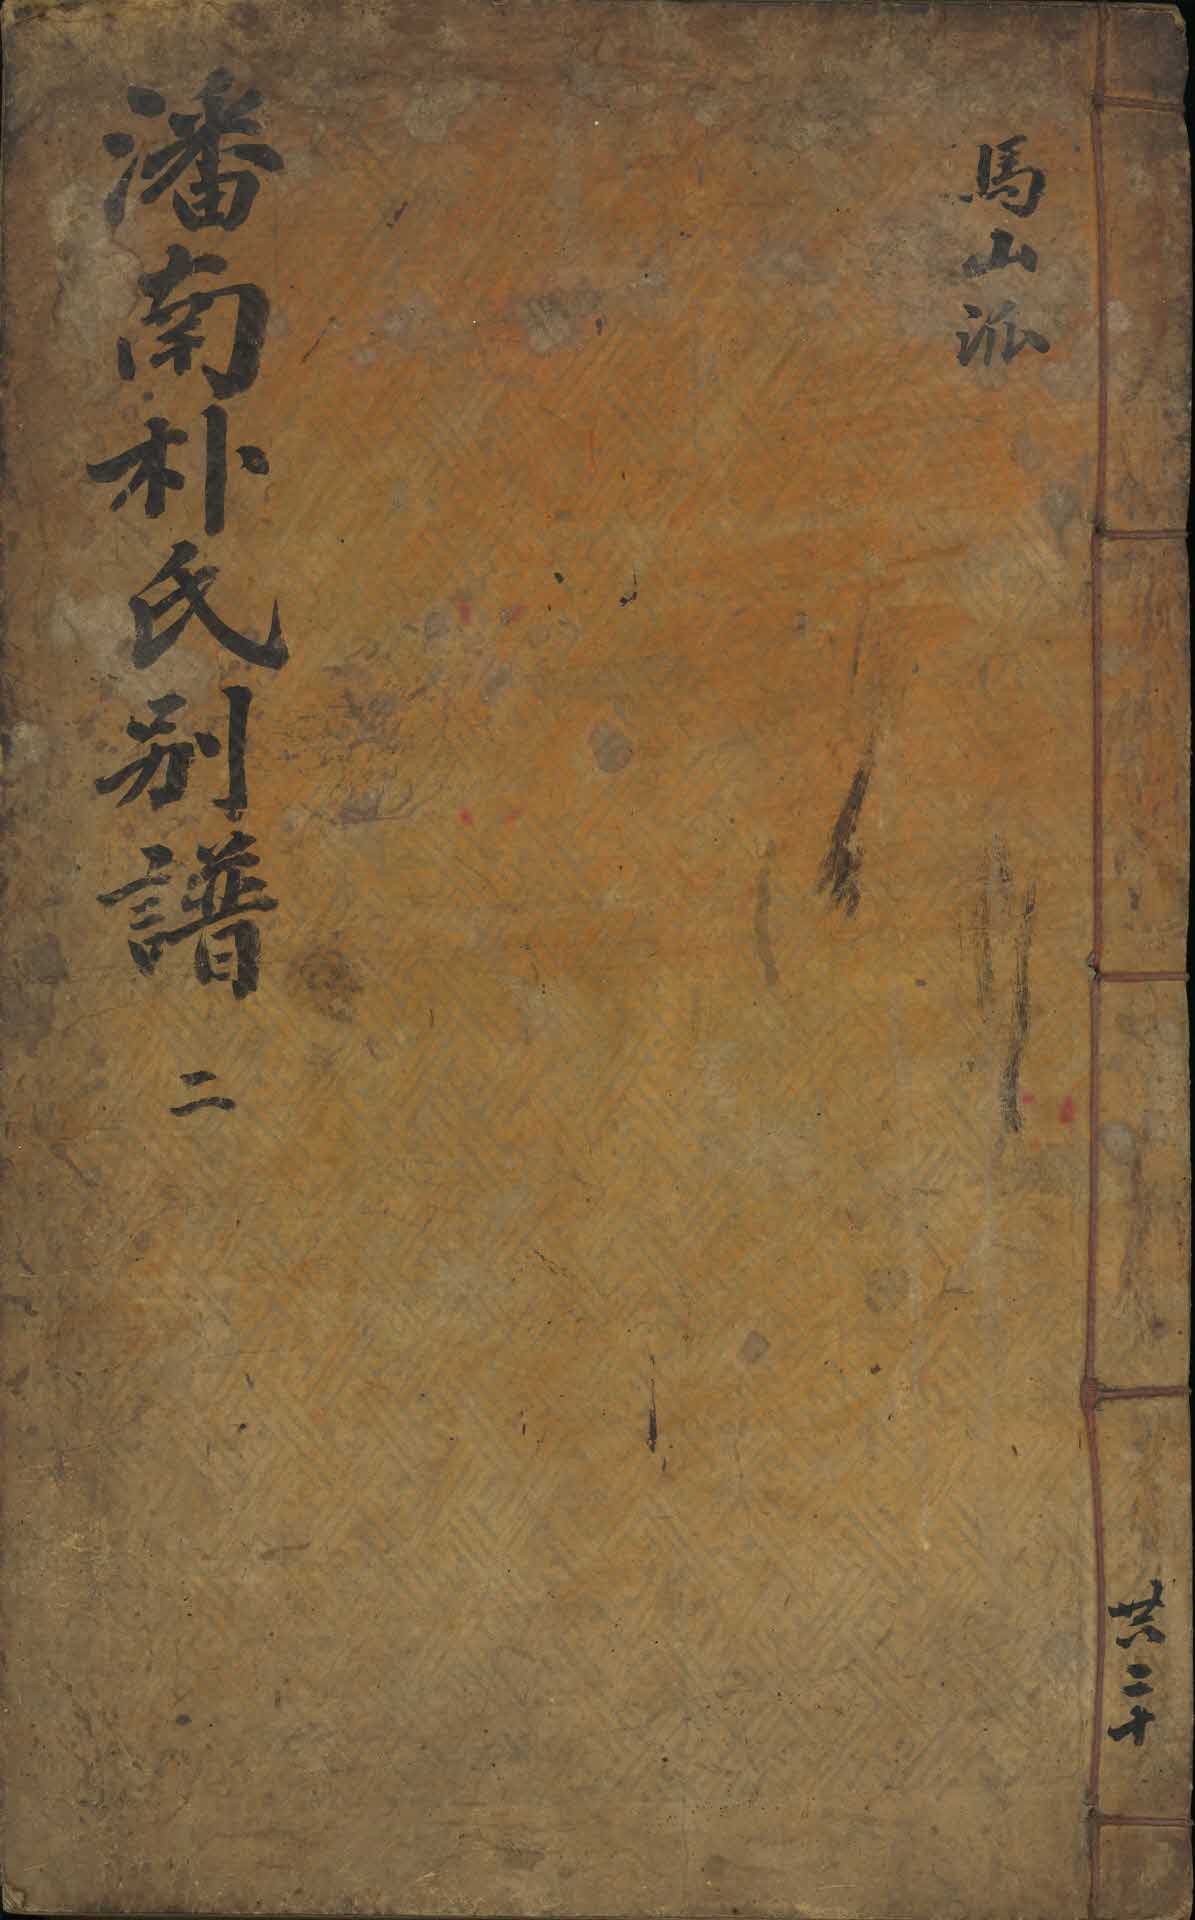 馬山派
潘南朴氏別譜 二
共二十